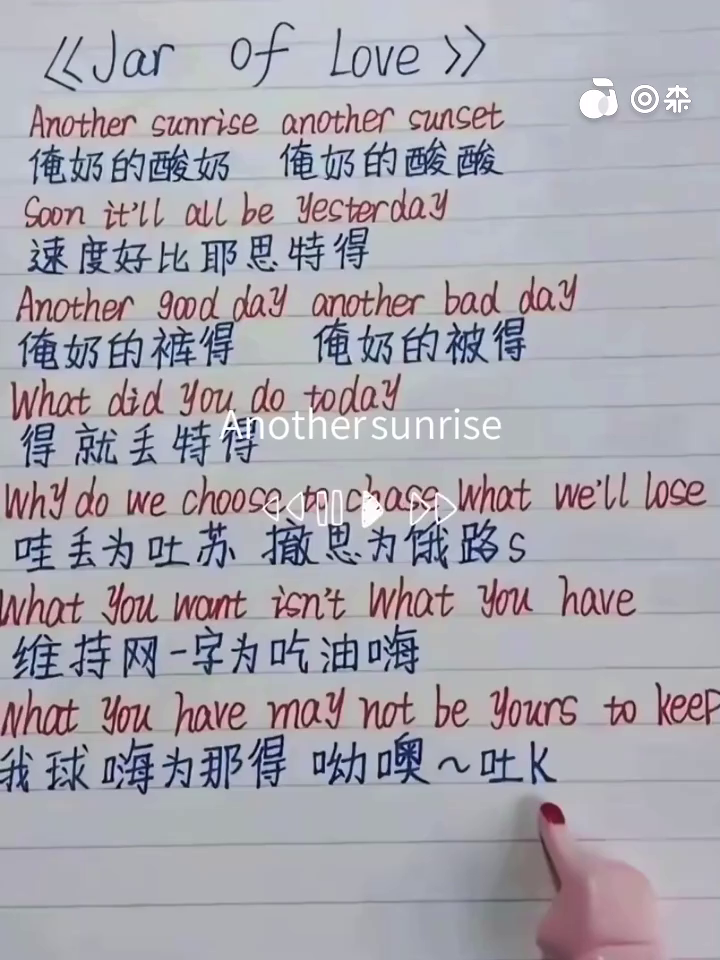 《Jar of Love》
森
Another sunrise another sunset
俺奶的酸奶 俺奶的酸酸
Soon it'll all be yesterday
速度好比耶思特得
Another good day another bad day
俺奶的裤得 俺奶的被得
What did you do today
Anothersunrise
得就丢特得
Why do we choose to chase what we'll lose
哇丢为吐苏 撤思为饿路s
What you want isn't what you have
维持网一字为吃油嗨
What you have may not be yours to keep
我球嗨为那得 呦噢~吐K